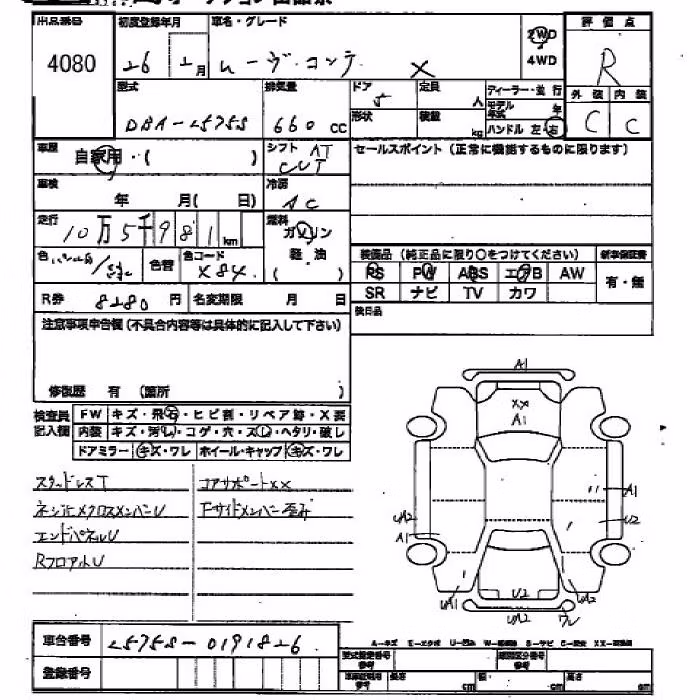 出品番号
4080
初度登録年月
26 2月
車名・グレード
ムーヴ コンテ X
2WD
4WD
評価点
R
外装 内装
C C
型式
DBA-L575S
排気量
660 cc
ドア
5
定員
人
形状
装備
kg
ディーラー・並行
モデル年式
年
ハンドル 左・右
車歴
自家用・( )
シフト AT
CVT
セールスポイント(正常に機能するものに限ります)
車検
年 月( 日)
冷房
AC
走行
10万5千981km
燃料
ガソリン
軽油
( )
色
色替
色コード
X84
装備品(純正品に限り○をつけてください)
新車保証書
PS PW ABS エアB AW
SR ナビ TV カワ
有・無
R券 8280円
名変期限 月 日
後日品
注意事項申告欄(不具合内容等は具体的に記入して下さい)
修復歴 有 (箇所 )
検査員記入欄
FW キズ・飛石・ヒビ割・リペア跡・X要
内装 キズ・汚れ・コゲ・穴・スレ・ヘタリ・破レ
ドアミラー キズ・ワレ ホイール・キャップ キズ・ワレ
スタッドレスT
コアサポートXX
ネジ止メクロスメンバーU
Fサイドメンバー歪み
エンドパネルU
RフロアルU
A1
XX
A1
A1
U2
UA2
A1
UA1
U2
UA2
UA2
ワレ
車台番号
L575S-0191826
登録番号
A-キズ E-エクボ U-凹み S-サビ
型式指定番号
類別区分番号
長さ cm
幅 cm
高さ cm